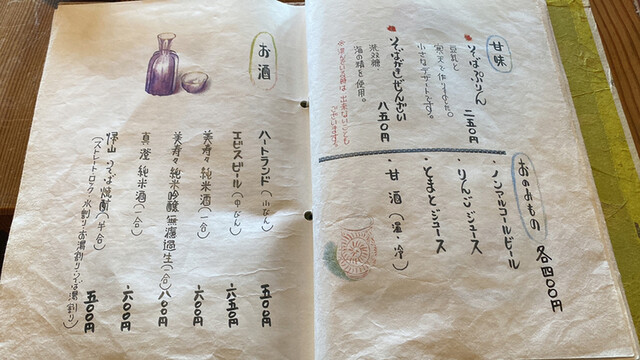 甘味
そばぷりん 二五〇円
豆乳と
寒天で作りました。
小さなデザートです。
そばがきぜんざい 八五〇円
洗双糖、
海の精を使用。
出来ないことも
ございます。
おのみもの 各四〇〇円
・ノンアルコールビール
・りんごジュース
・とまとジュース
・甘酒(温・冷)
お酒
ハートランド(小びん) 五〇〇円
エビスビール(中びん) 六五〇円
美寿々 純米酒(一合) 六〇〇円
美寿々 純米吟醸 無濾過生(一合) 八〇〇円
真澄 純米酒(一合) 六〇〇円
帰山 そば焼酎(半合) 五〇〇円
(ストレート・ロック・水割り・お湯割り・そば湯割り)